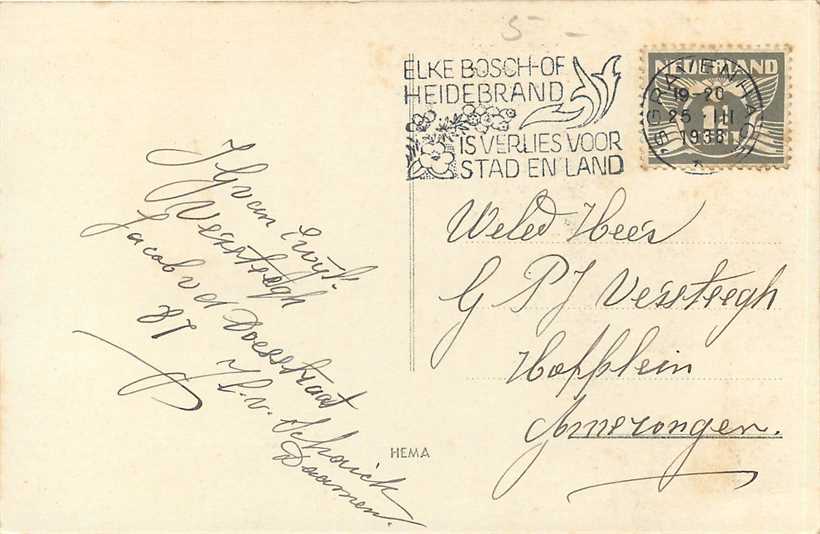 5-
ELKE BOSCH-OF
HEIDEBRAND
IS VERLIES VOOR
STAD EN LAND
NEDERLAND
'S GRAVENHAGE
19-20
25 III
1938
Weled Heer
G P J Versteegh
Hofplein
Amerongen.
van Ewijk
Versteegh
Jacob v d Doesstraat
81
H. v. Schaick
Daamen.
HEMA